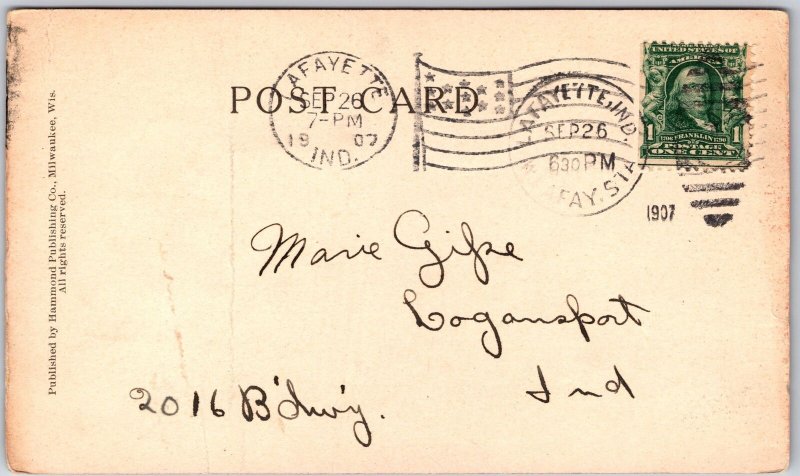 LAFAYETTE
SEP 26
7-PM
1907
IND.
POST CARD
LAFAYETTE, IND.
SEP 26
630 PM
LAFAY. STA
1907
UNITED STATES OF
AMERICA
1 FRANKLIN 1
POSTAGE
ONE CENT
Marie
Logansport
Ind
2016 B'dw'y.
Published by Hammond Publishing Co., Milwaukee, Wis.
All rights reserved.